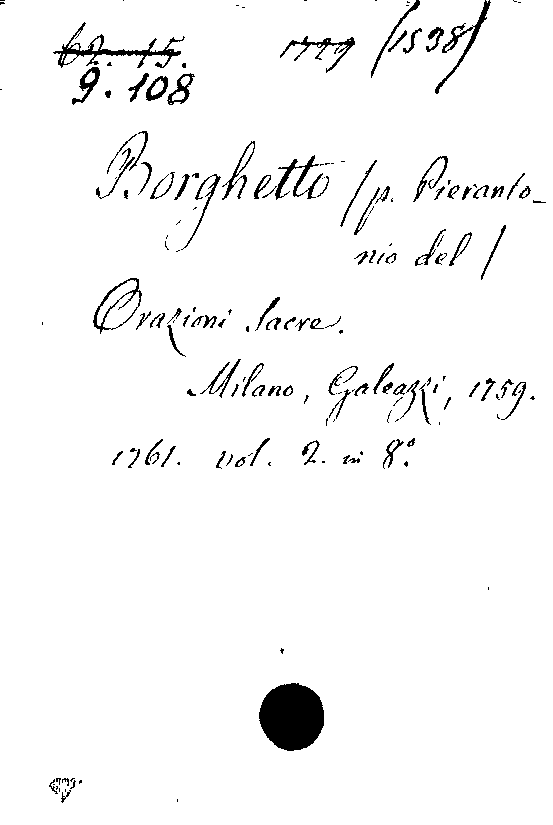 62. 15. 1779 (1538)
9. 108
Borghetto / p. Pieranto-
nio del /
Orazioni Sacre.
Milano, Galeazzi, 1759.
1761. vol. 2. in 8°.